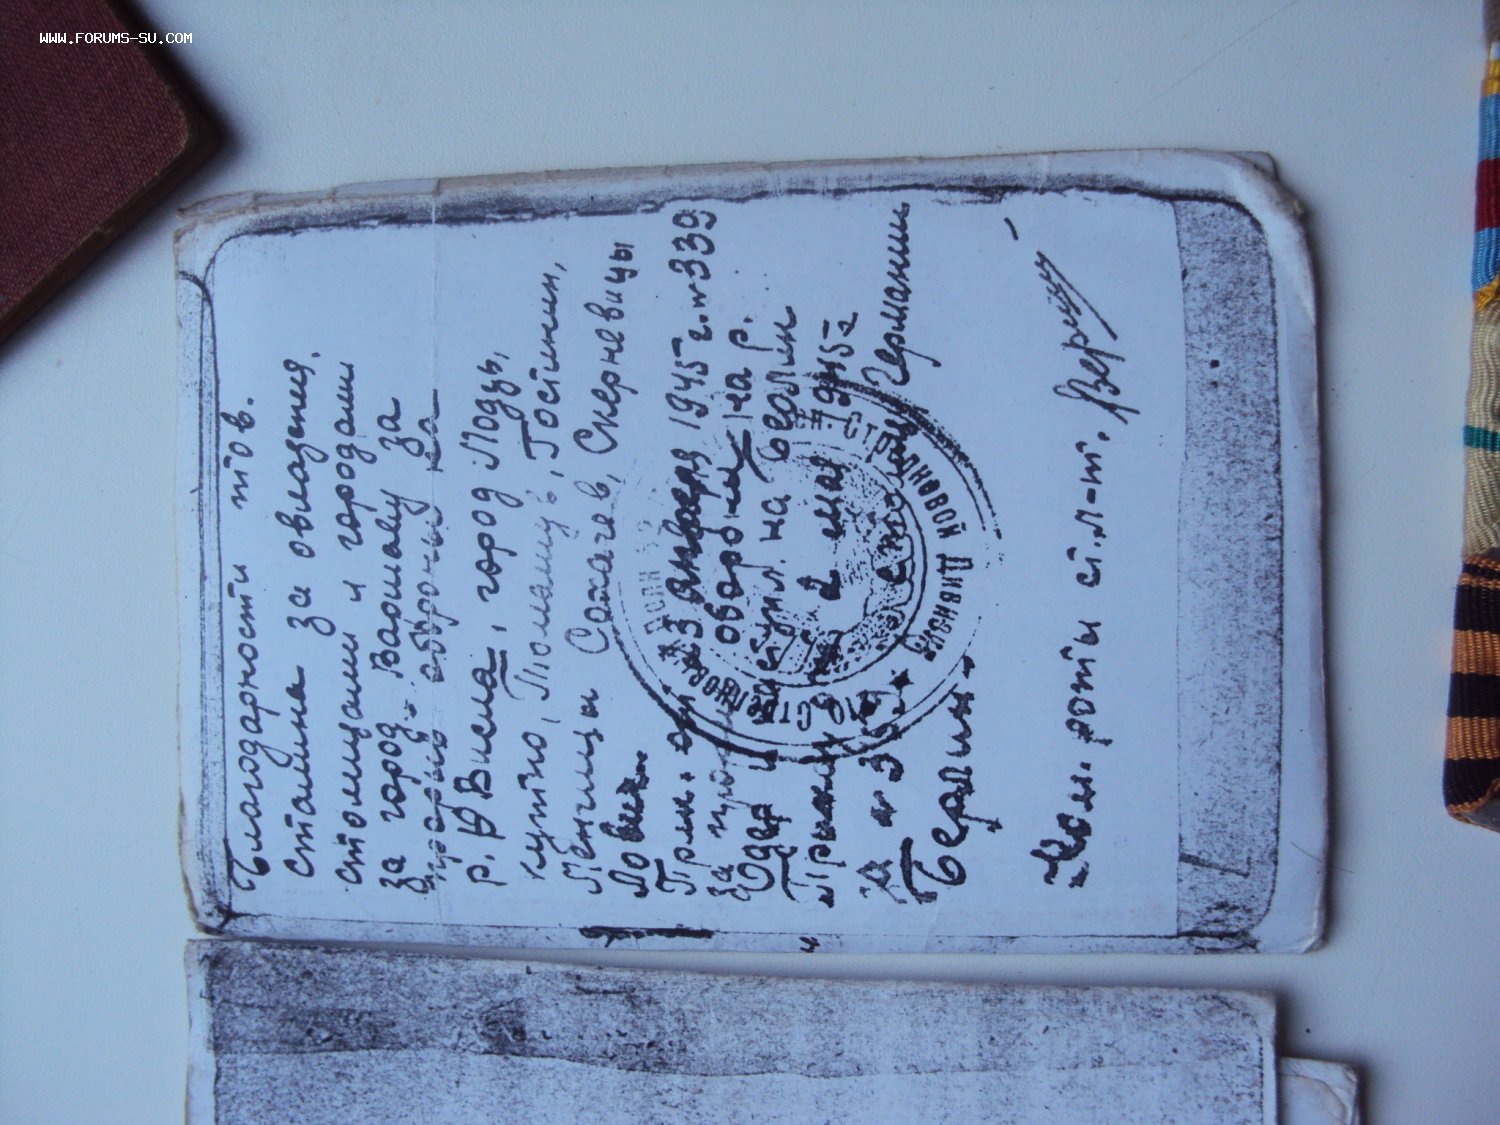 WWW.FORUMS-SU.COM
Благодарности тов.
Сталина за овладения.
столицами и городами
за город. Варшаву за
прорыв обороны на
р. Висла, город Лодзь,
Кутно, Томашув, Гостинин,
Ленчицы Сохачев, Скерневицы
Лович.
Прик. от 23 января 1945 г. № 339
за прорыв обороны на р.
Одер и наступл. на Берлин
Приказ 2 мая 1945 г
№ 359 столицу Германии
Берлин
Ком. роты ст. л-т.
СТРЕЛКОВОЙ ДИВИЗИИ